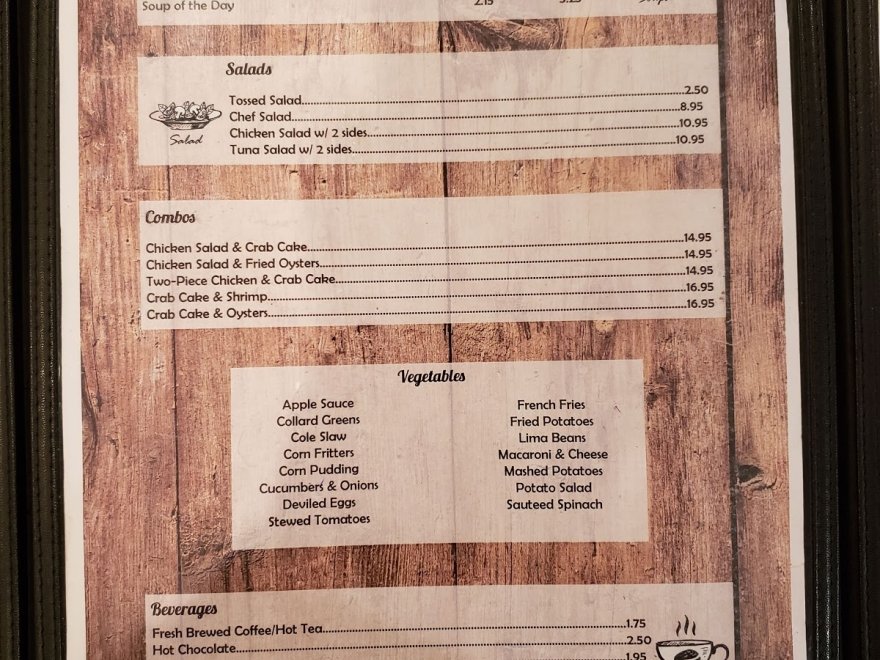 Soup of the Day 2.15 3.25 Soups
Salads
Tossed Salad 2.50
Chef Salad 8.95
Chicken Salad w/ 2 sides 10.95
Tuna Salad w/ 2 sides 10.95
Salad
Combos
Chicken Salad & Crab Cake 14.95
Chicken Salad & Fried Oysters 14.95
Two-Piece Chicken & Crab Cake 14.95
Crab Cake & Shrimp 16.95
Crab Cake & Oysters 16.95
Vegetables
Apple Sauce
Collard Greens
Cole Slaw
Corn Fritters
Corn Pudding
Cucumbers & Onions
Deviled Eggs
Stewed Tomatoes
French Fries
Fried Potatoes
Lima Beans
Macaroni & Cheese
Mashed Potatoes
Potato Salad
Sauteed Spinach
Beverages
Fresh Brewed Coffee/Hot Tea 1.75
Hot Chocolate 2.50
1.95